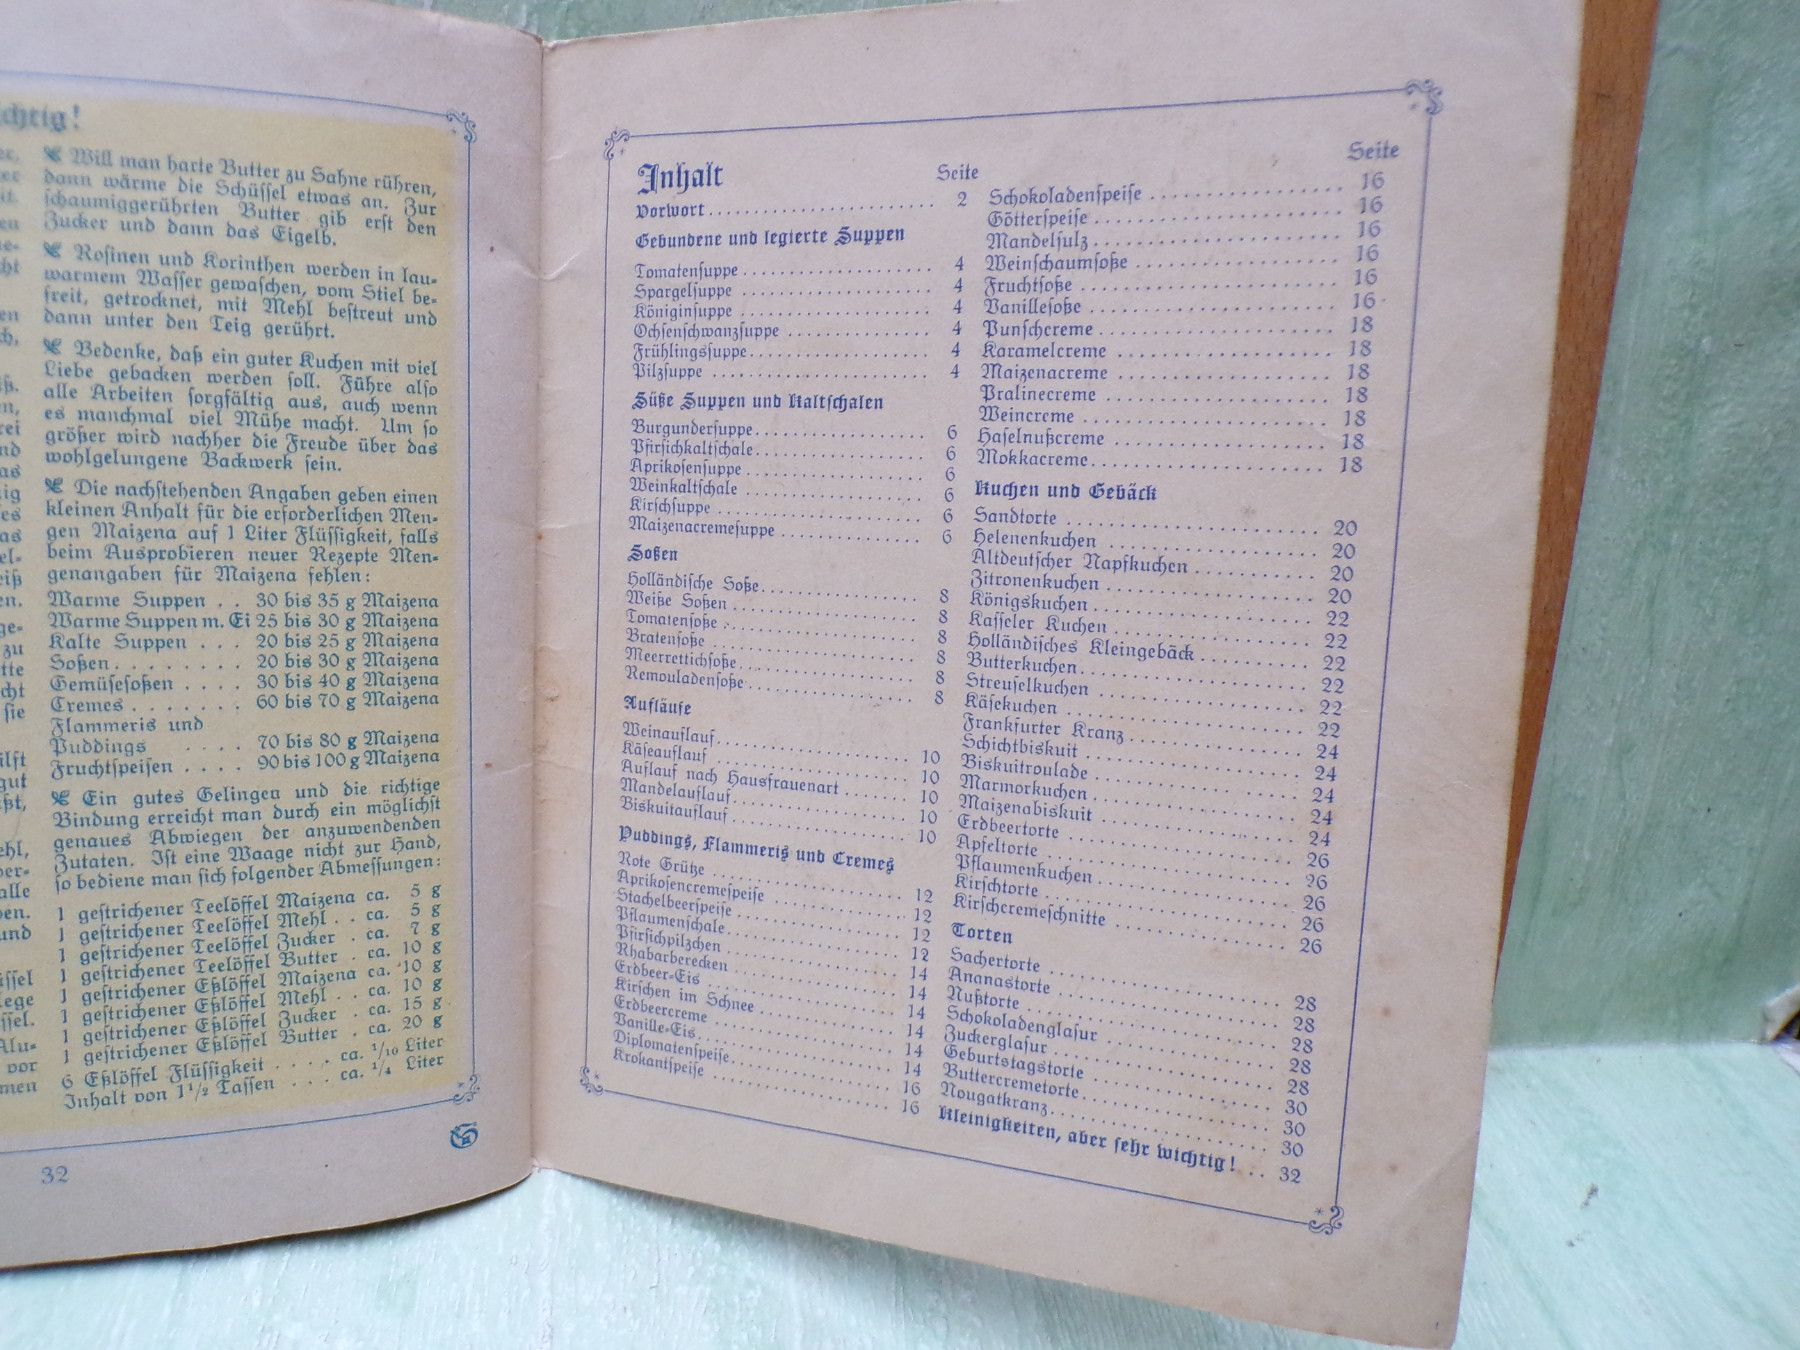 chtig!
Will man harte Butter zu Sahne rühren,
dann wärme die Schüssel etwas an. Zur
schaumiggerührten Butter gib erst den
Zucker und dann das Eigelb.
Rosinen und Korinthen werden in lau-
warmem Wasser gewaschen, vom Stiel be-
freit, getrocknet, mit Mehl bestreut und
dann unter den Teig gerührt.
Bedenke, daß ein guter Kuchen mit viel
Liebe gebacken werden soll. Führe also
alle Arbeiten sorgfältig aus, auch wenn
es manchmal viel Mühe macht. Um so
größer wird nachher die Freude über das
wohlgelungene Backwerk sein.
Die nachstehenden Angaben geben einen
kleinen Anhalt für die erforderlichen Men-
gen Maizena auf 1 Liter Flüssigkeit, falls
beim Ausprobieren neuer Rezepte Men-
genangaben für Maizena fehlen:
Warme Suppen . . 30 bis 35 g Maizena
Warme Suppen m. Ei 25 bis 30 g Maizena
Kalte Suppen . . . 20 bis 25 g Maizena
Soßen . . . . . . . . 20 bis 30 g Maizena
Gemüsesoßen . . . . 30 bis 40 g Maizena
Cremes . . . . . . . 60 bis 70 g Maizena
Flammeris und
Puddings . . . . 70 bis 80 g Maizena
Fruchtspeisen . . . . 90 bis 100 g Maizena
Ein gutes Gelingen und die richtige
Bindung erreicht man durch ein möglichst
genaues Abwiegen der anzuwendenden
Zutaten. Ist eine Waage nicht zur Hand,
so bediene man sich folgender Abmessungen:
1 gestrichener Teelöffel Maizena ca. 5 g
1 gestrichener Teelöffel Mehl . . ca. 5 g
1 gestrichener Teelöffel Zucker . ca. 7 g
1 gestrichener Teelöffel Butter . ca. 10 g
1 gestrichener Eßlöffel Maizena ca. 10 g
1 gestrichener Eßlöffel Mehl . . ca. 10 g
1 gestrichener Eßlöffel Zucker . ca. 15 g
1 gestrichener Eßlöffel Butter . ca. 20 g
6 Eßlöffel Flüssigkeit . . . . ca. 1/10 Liter
Inhalt von 1 1/2 Tassen . . . ca. 1/4 Liter
32
Inhalt Seite
Vorwort 2
Gebundene und legierte Suppen
Tomatensuppe 4
Spargelsuppe 4
Königinsuppe 4
Ochsenschwanzsuppe 4
Frühlingssuppe 4
Pilzsuppe 4
Süße Suppen und Kaltschalen
Burgundersuppe 6
Pfirsichkaltschale 6
Aprikosensuppe 6
Weinkaltschale 6
Kirschsuppe 6
Maizenacremesuppe 6
Soßen
Holländische Soße 8
Weiße Soßen 8
Tomatensoße 8
Bratensoße 8
Meerrettichsoße 8
Remouladensoße 8
Aufläufe
Weinauflauf 10
Käseauflauf 10
Auflauf nach Hausfrauenart 10
Mandelauflauf 10
Biskuitauflauf 10
Puddings, Flammeris und Cremes
Rote Grütze 12
Aprikosencremespeise 12
Stachelbeerspeise 12
Pflaumenschale 12
Pfirsichpilzchen 14
Rhabarberecken 14
Erdbeer-Eis 14
Kirschen im Schnee 14
Erdbeercreme 14
Vanille-Eis 14
Diplomatenspeise 16
Krokantspeise 16
Seite
Schokoladenspeise 16
Götterspeise 16
Mandelsulz 16
Weinschaumsoße 16
Fruchtsoße 16
Vanillesoße 16
Punschcreme 18
Karamelcreme 18
Maizenacreme 18
Pralinecreme 18
Weincreme 18
Haselnußcreme 18
Mokkacreme 18
Kuchen und Gebäck
Sandtorte 20
Helenenkuchen 20
Altdeutscher Napfkuchen 20
Zitronenkuchen 20
Königskuchen 22
Kasseler Kuchen 22
Holländisches Kleingebäck 22
Butterkuchen 22
Streuselkuchen 22
Käsekuchen 22
Frankfurter Kranz 24
Schichtbiskuit 24
Biskuitroulade 24
Marmorkuchen 24
Maizenabiskuit 24
Erdbeertorte 26
Apfeltorte 26
Pflaumenkuchen 26
Kirschtorte 26
Kirschcremeschnitte 26
Torten
Sachertorte 28
Ananastorte 28
Nußtorte 28
Schokoladenglasur 28
Zuckerglasur 28
Geburtstagstorte 30
Buttercremetorte 30
Nougatkranz 30
Kleinigkeiten, aber sehr wichtig! . . 32